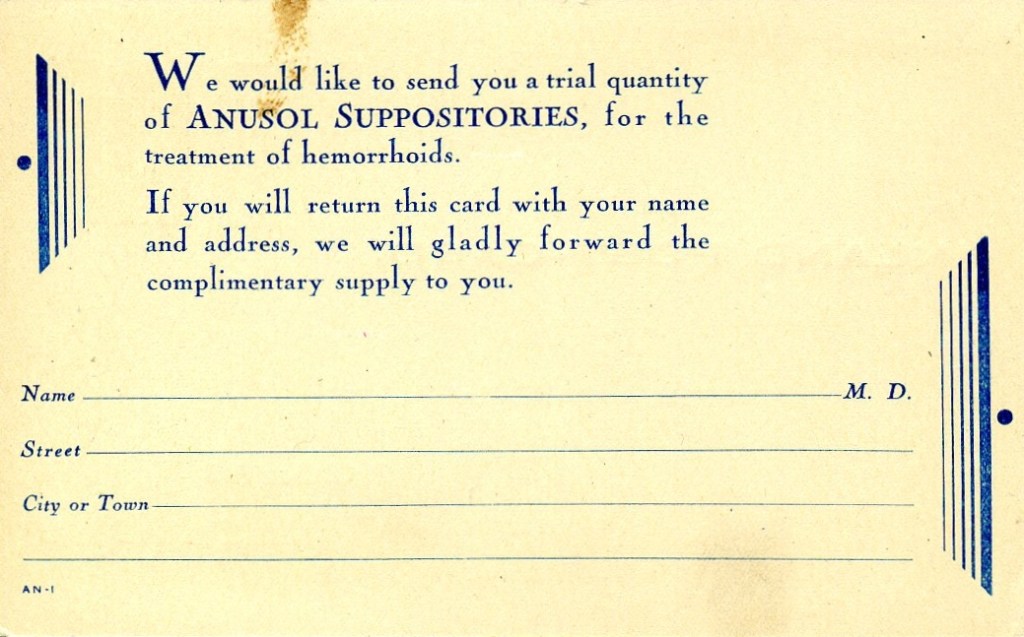 We would like to send you a trial quantity
of ANUSOL SUPPOSITORIES, for the
treatment of hemorrhoids.
If you will return this card with your name
and address, we will gladly forward the
complimentary supply to you.
Name M. D.
Street
City or Town
AN-1